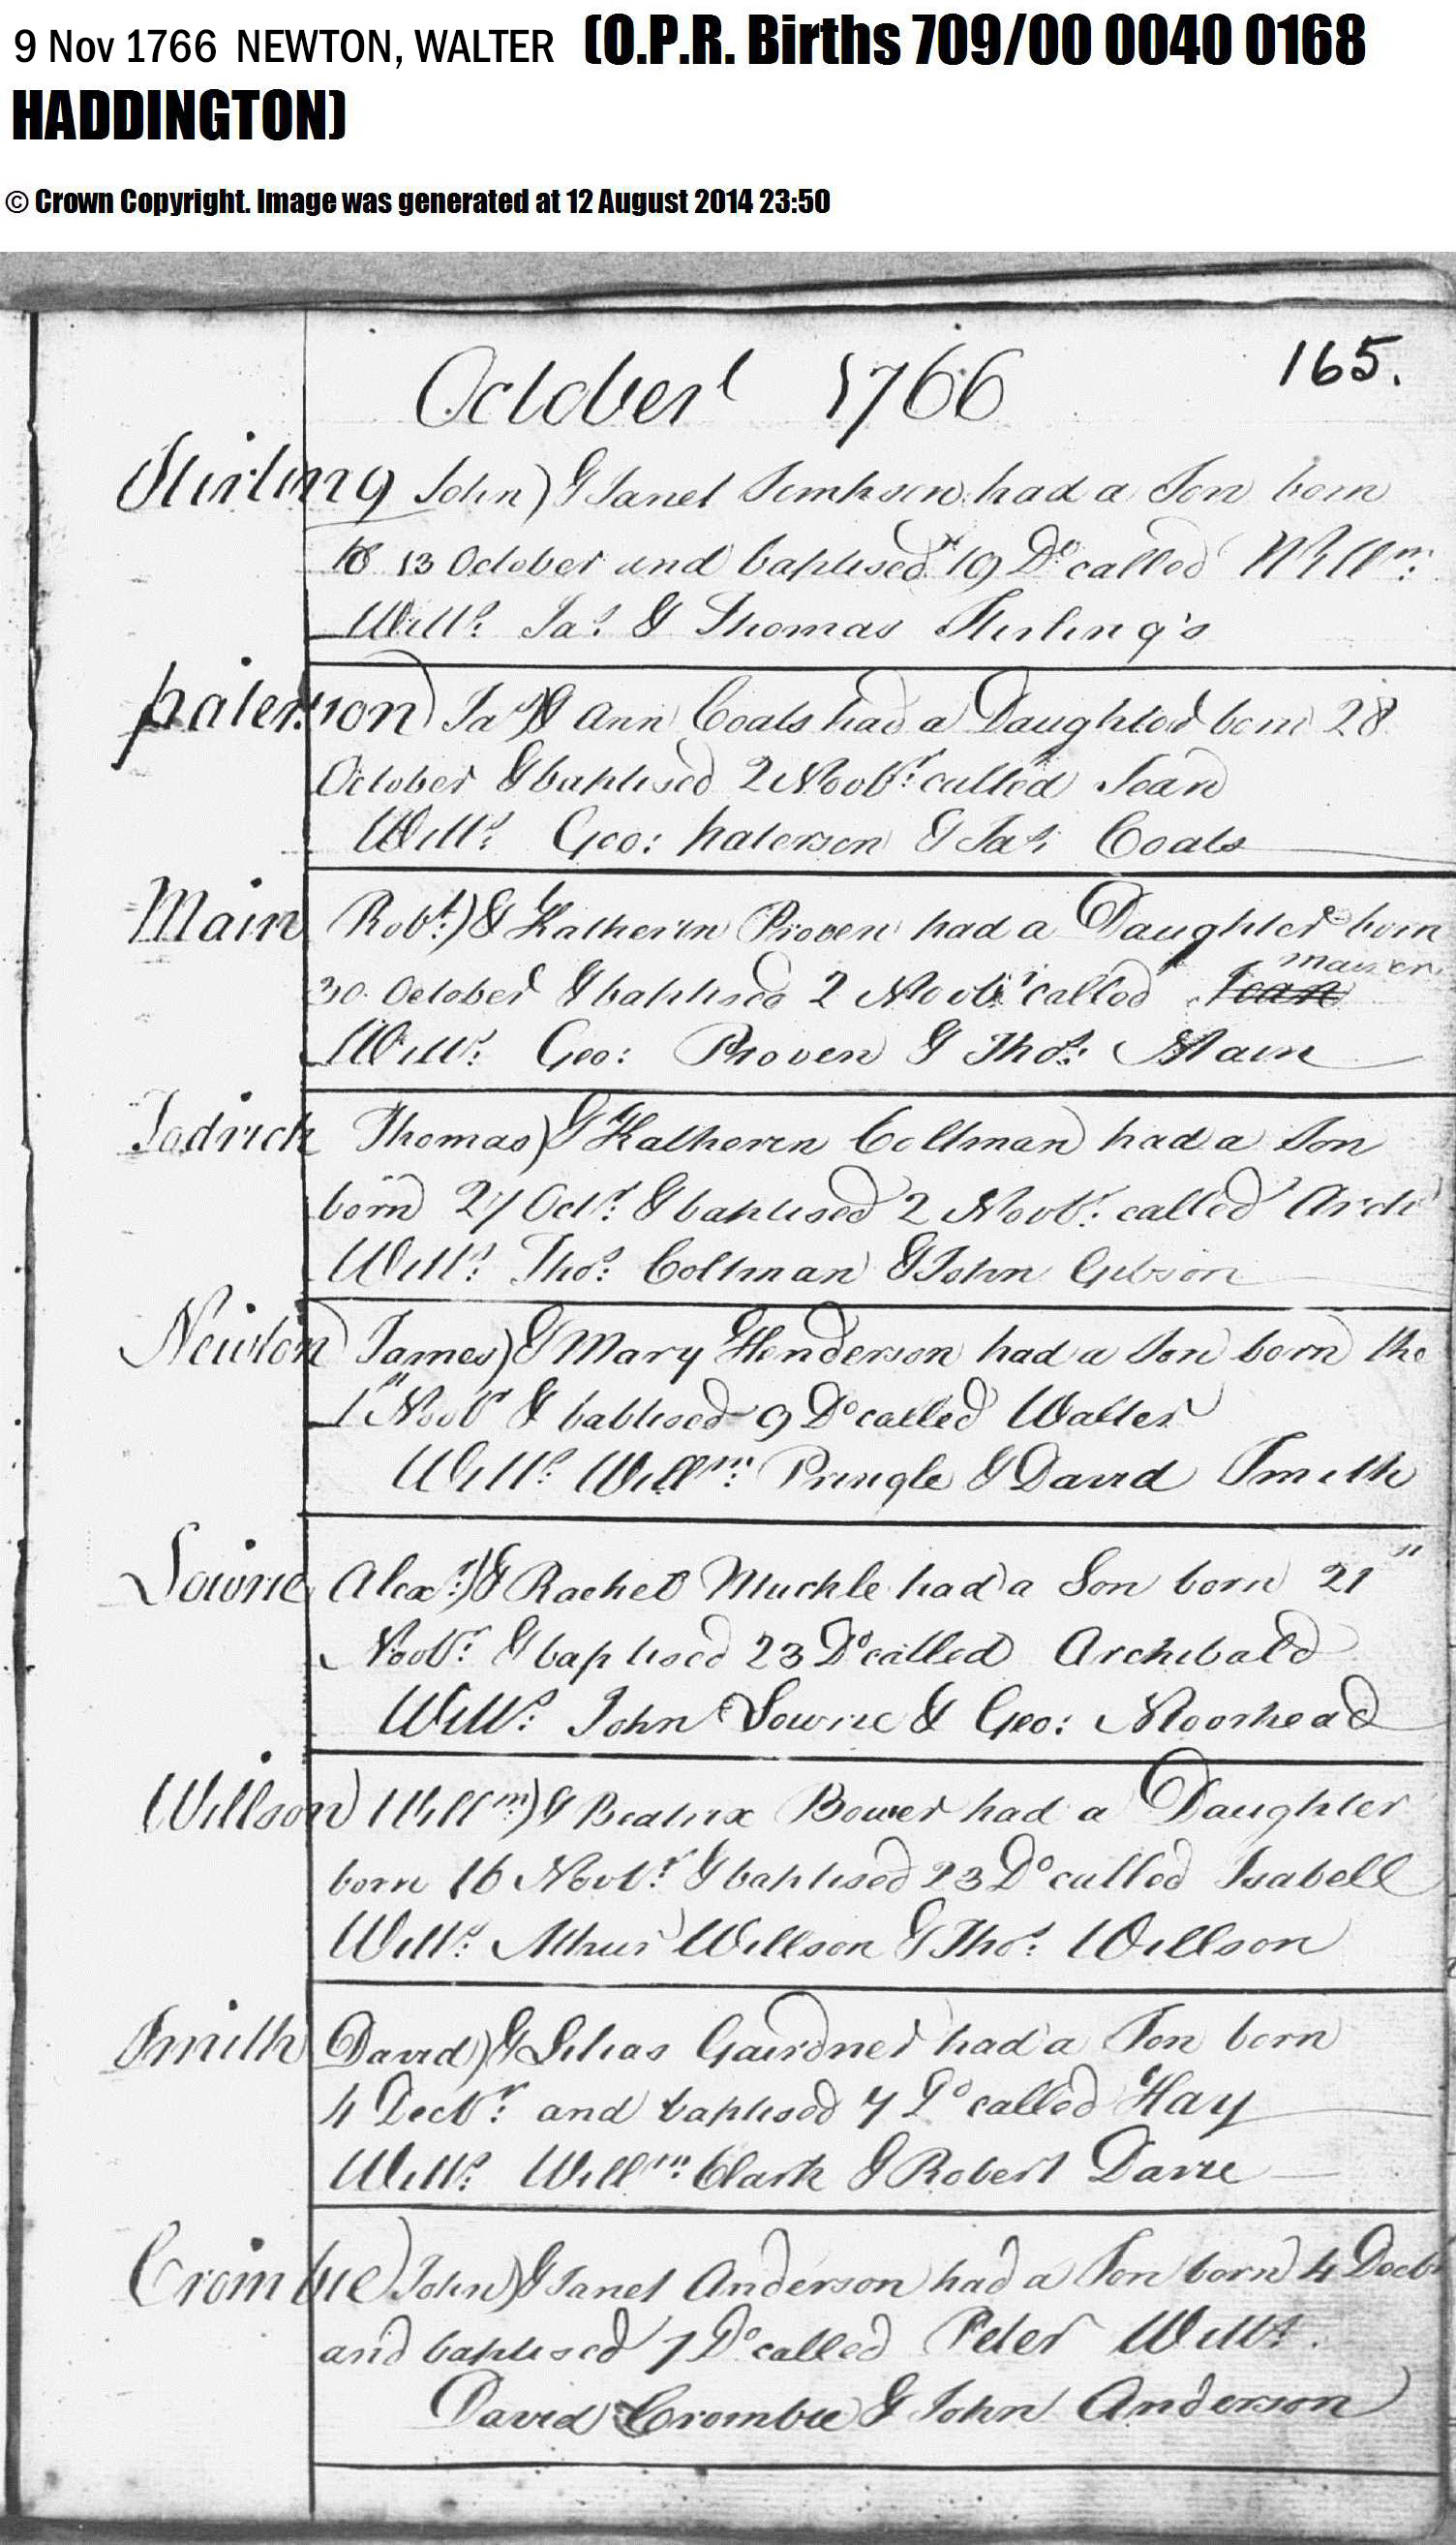 9 Nov 1766 NEWTON, WALTER (O.P.R. Births 709/00 0040 0168
HADDINGTON)
© Crown Copyright. Image was generated at 12 August 2014 23:50
165.
October 1766
Stirling John) & Janet Simpson had a Son born
13 October and baptised 19 Do called Willm:
Witts: Jas: & Thomas Stirling's
paterson) Jas) & Ann Coats had a Daughter born 28
October & baptised 2 Novbr: called Jean
Witts: Geo: paterson & Jas: Coats
Main Robt:) & Katherin Proven had a Daughter born
30 October & baptised 2 Novbr: called Jean
Witts: Geo: Proven & Thos: Main
Thomas) & Katheren Coltman had a Son
born 27 Octr: & baptised 2 Novbr: called
Witts: Thos: Coltman & John Gibson
Newton James) & Mary Henderson had a Son born the
1st Novbr & babtised 9 Do called Walter
Witts: Willm: Pringle & David Smith
Lowrie Alexr:) & Rachel Muckle had a Son born 21
Novbr: & baptised 23 Do called Archibald
Witts: John Lowrie & Geo: Moorhead
Willson) Willm:) & Beatrix Bower had a Daughter
born 16 Novbr: & baptised 23 Do called Isabell
Witts: Athur Willson & Thos: Willson
Smith David) & Lilias Gairdner had a Son born
4 Decbr: and baptised 7 Do called Hay
Witts: Willm: Clark & Robert Davie
Crombie) John) & Janet Anderson had a Son born 4 Decbr
and baptised 7 Do called Peter Witts:
David Crombie & John Anderson